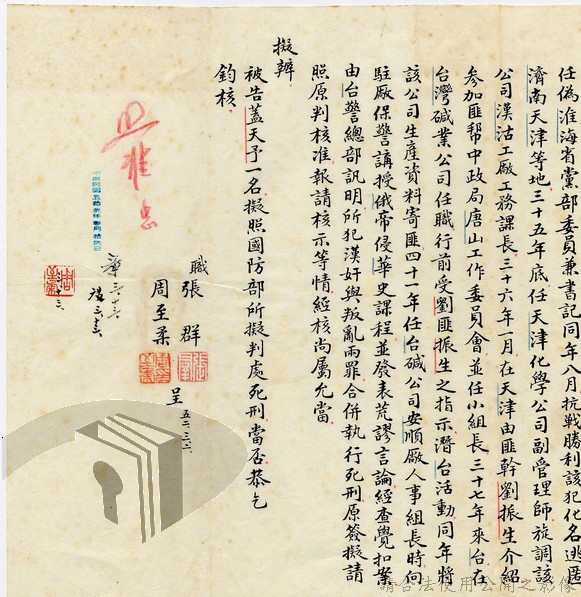 任偽淮海省黨部委員兼書記同年八月抗戰勝利該犯化名逃匿
濟南天津等地三十五年底任天津化學公司副管理師旋調該
公司漢沽工廠工務課長三十六年一月在天津由匪幹劉振生介紹
參加匪幫中政局唐山工作委員會並任小組長三十七年來台在
台灣碱業公司任職行前受劉匪振生之指示潛台活動同年將
該公司生產資料寄匪四十一年任台碱公司安順廠人事組長時向
駐廠保警講授俄帝侵華史課程並發表荒謬言論經查覺扣案
由台警總部訊明所犯漢奸與叛亂兩罪合併執行死刑原簽擬請
照原判核准報請核示等情經核尚屬允當
擬辦
被告蓋天予一名擬照國防部所擬判處死刑當否恭乞
鈞核
職張群
周至柔
呈
五二、三、二
請合法使用公開之影像